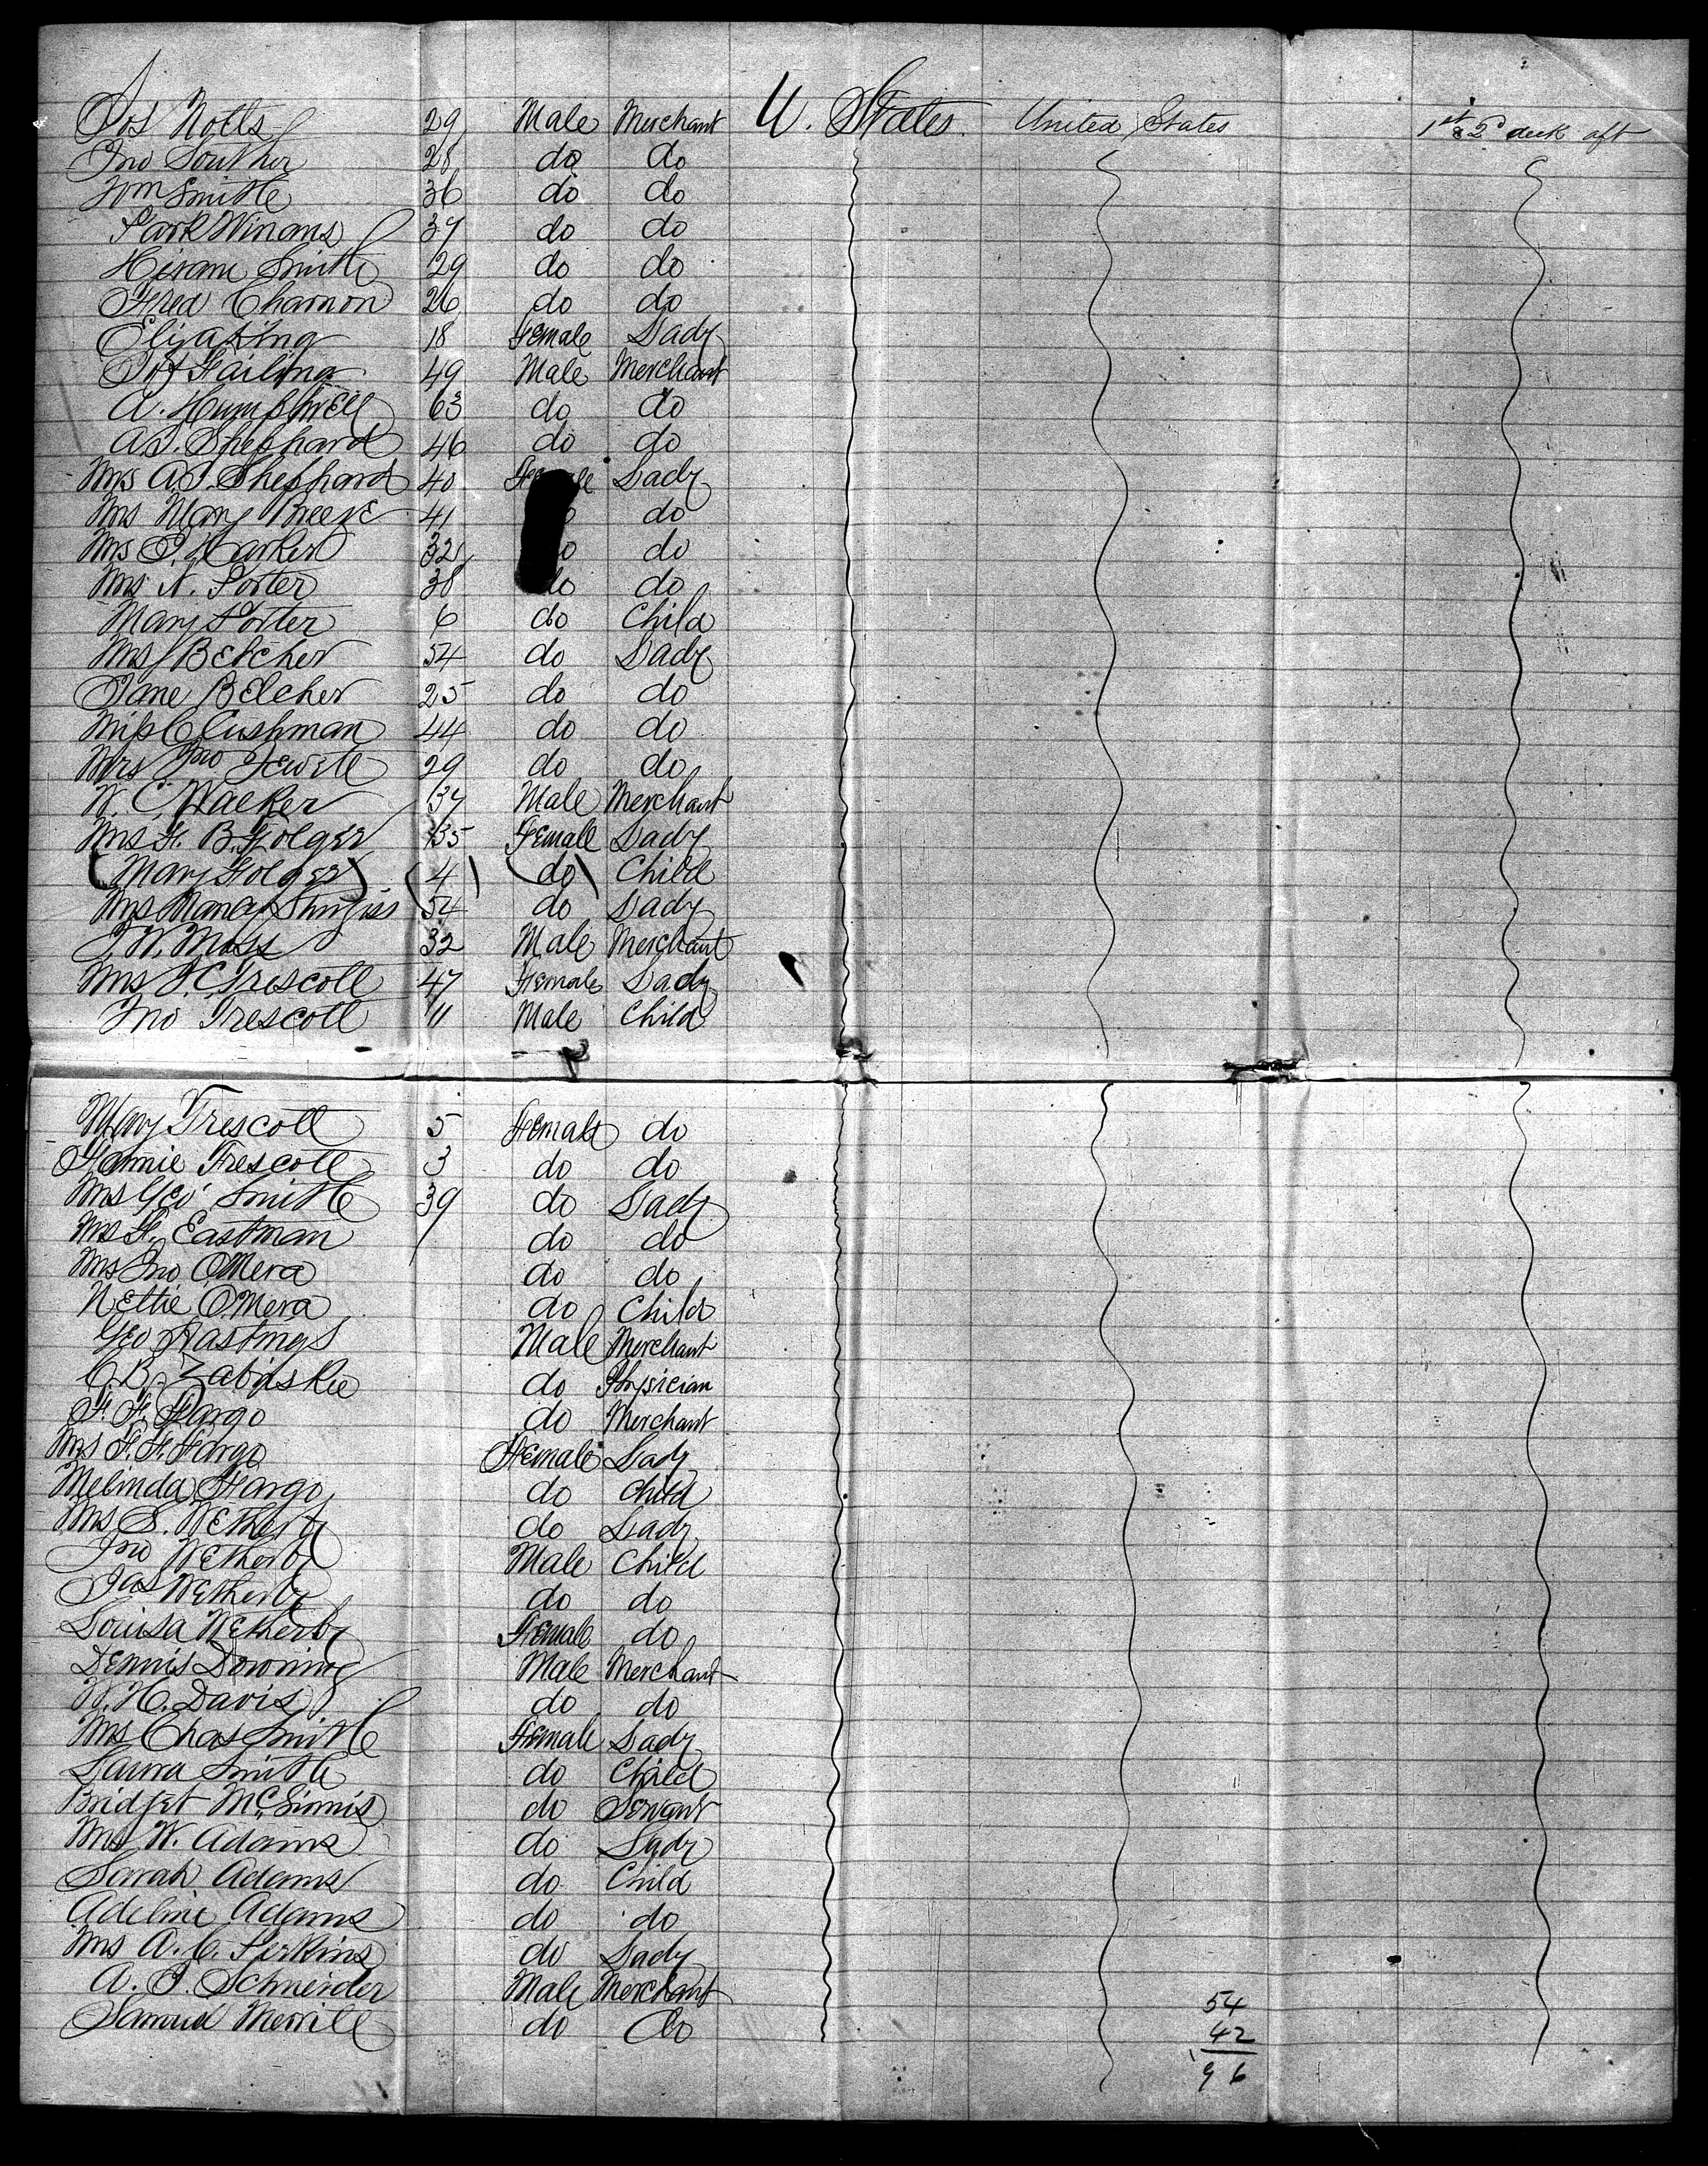 Jos Notts 29 Male Merchant U. States. United States 1st & 2d deck aft
Jno Souther 28 do do
Wm Smith 36 do do
Park Winans 37 do do
Hiram Smith 29 do do
Fred Charnon 26 do do
Eliza King 18 Female Lady
Jos Failing 49 Male Merchant
A. 63 do do
A.J. Shephard 46 do do
Mrs A.J. Shephard 40 Female Lady
Mrs Mary Breeve 41 do
Mrs S. Harker 32 do do
Mrs N. Porter 38 do do
Mary Porter 6 do Child
Mrs Belcher 54 do Lady
Jane Belcher 25 do do
Miss C Cushman 44 do do
Mrs Jno Jewell 29 do do
W. C. Walker 37 Male Merchant
Mrs F. B. Folger 35 Female Lady
(Mary Folger) (4) (do) Child
Mrs Nancy Sturgiss 54 do Lady
J. W. Moss 32 Male Merchant
Mrs J. C. Trescott 47 Female Lady
Jno Trescott 11 Male Child
Mary Trescott 5 Female do
Fannie Trescott 3 do do
Mrs Geo Smith 39 do Lady
Mrs F. Eastman do do
Mrs Jno O'Mera do do
Nettie O'Mera do Child
Geo Hastings Male Merchant
C. B. Zabriskie do Physician
F. F. Fargo do Merchant
Mrs F. F. Fargo Female Lady
Melinda Fargo do Child
Mrs S. Wetherby do Lady
Jno Wetherby Male Child
Jas Wetherby do do
Louisa Wetherby Female do
Dennis Downing Male Merchant
W. H. Davis do do
Mrs Chas Smith Female Lady
Laura Smith do Child
Bridget McGinnis do Servant
Mrs W. Adams do Lady
Sarah Adams do Child
Adeline Adams do do
Mrs A. C. Perkins do Lady
A. J. Schneider Male Merchant
Samuel Merrill do do
54
42
96